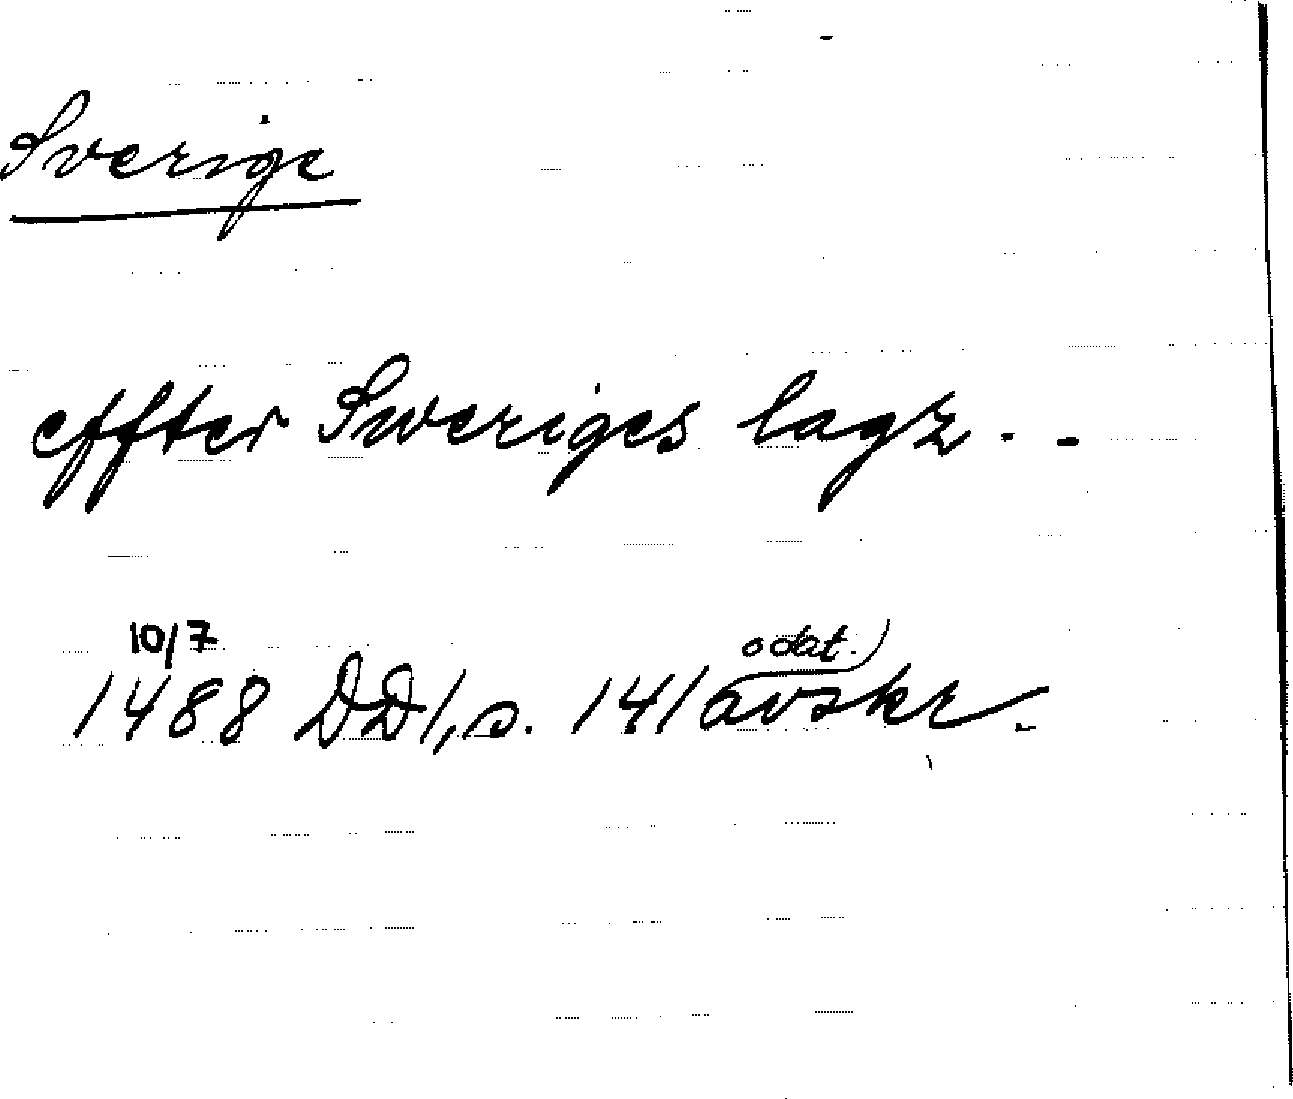 Sverige
effter Sweriges lagz . .
10/7
odat.)
1488 DD1, s. 141 avskr.